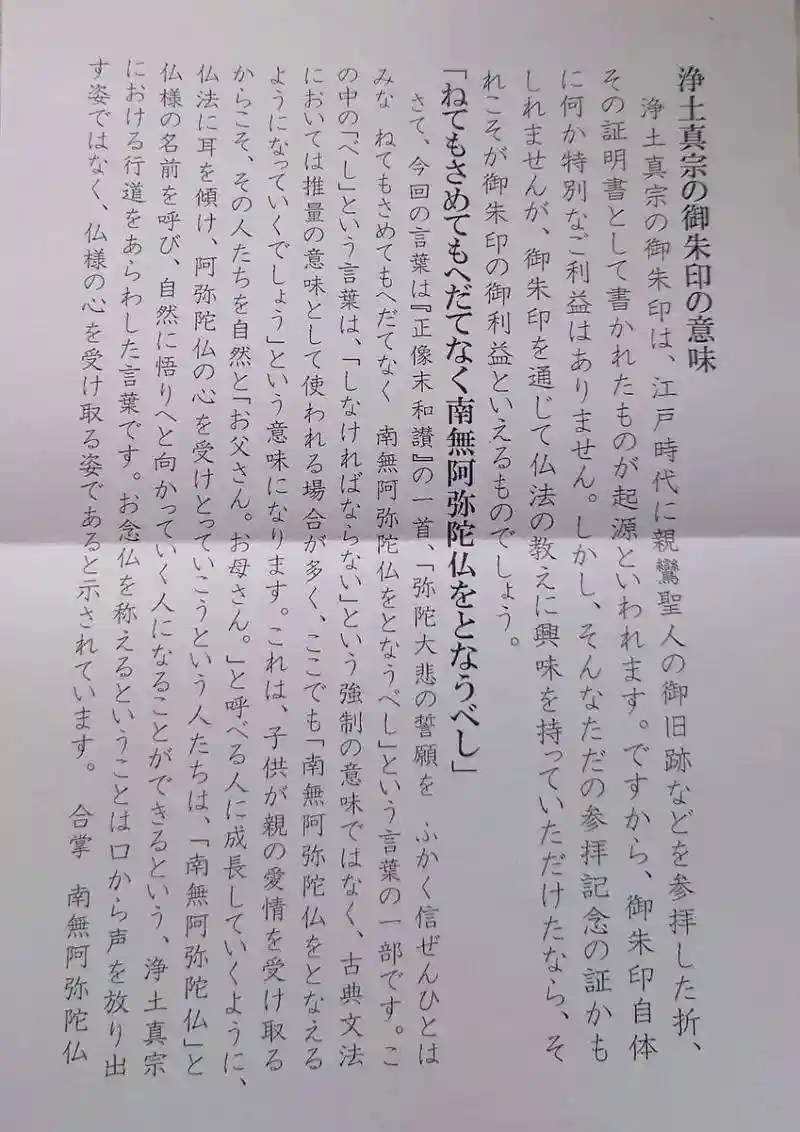 浄土真宗の御朱印の意味
浄土真宗の御朱印は、江戸時代に親鸞聖人の御旧跡などを参拝した折、
その証明書として書かれたものが起源といわれます。ですから、御朱印自体
に何か特別なご利益はありません。しかし、そんなただの参拝記念の証かも
しれませんが、御朱印を通じて仏法の教えに興味を持っていただけたなら、そ
れこそが御朱印の御利益といえるものでしょう。
「ねてもさめてもへだてなく南無阿弥陀仏をとなうべし」
さて、今回の言葉は『正像末和讃』の一首、「弥陀大悲の誓願を　ふかく信ぜんひとは
みな　ねてもさめてもへだてなく　南無阿弥陀仏をとなうべし」という言葉の一部です。こ
の中の「べし」という言葉は、「しなければならない」という強制の意味ではなく、古典文法
においては推量の意味として使われる場合が多く、ここでも「南無阿弥陀仏をとなえる
ようになっていくでしょう」という意味になります。これは、子供が親の愛情を受け取る
からこそ、その人たちを自然と「お父さん。お母さん。」と呼べる人に成長していくように、
仏法に耳を傾け、阿弥陀仏の心を受けとっていこうという人たちは、「南無阿弥陀仏」と
仏様の名前を呼び、自然に悟りへと向かっていく人になることができるという、浄土真宗
における行道をあらわした言葉です。お念仏を称えるということは口から声を放り出
す姿ではなく、仏様の心を受け取る姿であると示されています。　合掌　南無阿弥陀仏